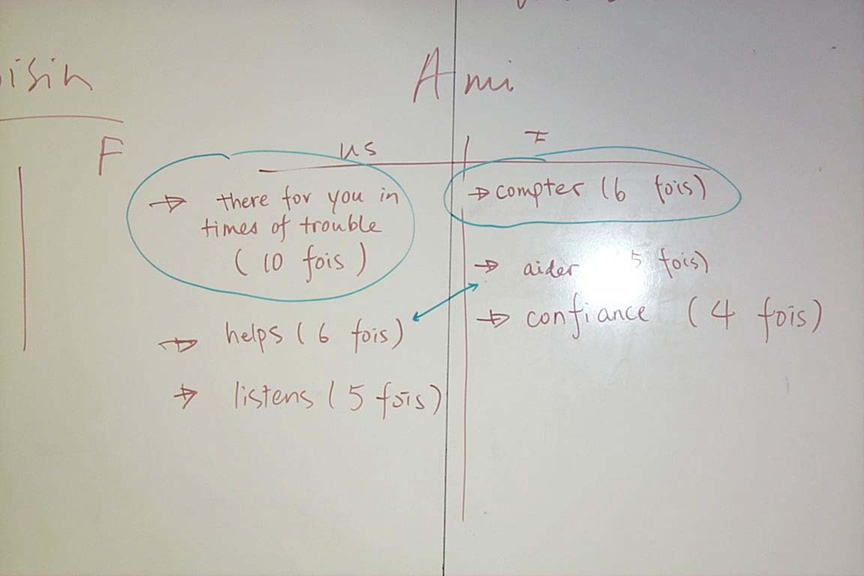 Ami
F
us
F
→ there for you in
times of trouble
(10 fois)
→ helps (6 fois)
→ listens (5 fois)
→ compter (6 fois)
→ aider 5 fois)
→ confiance (4 fois)